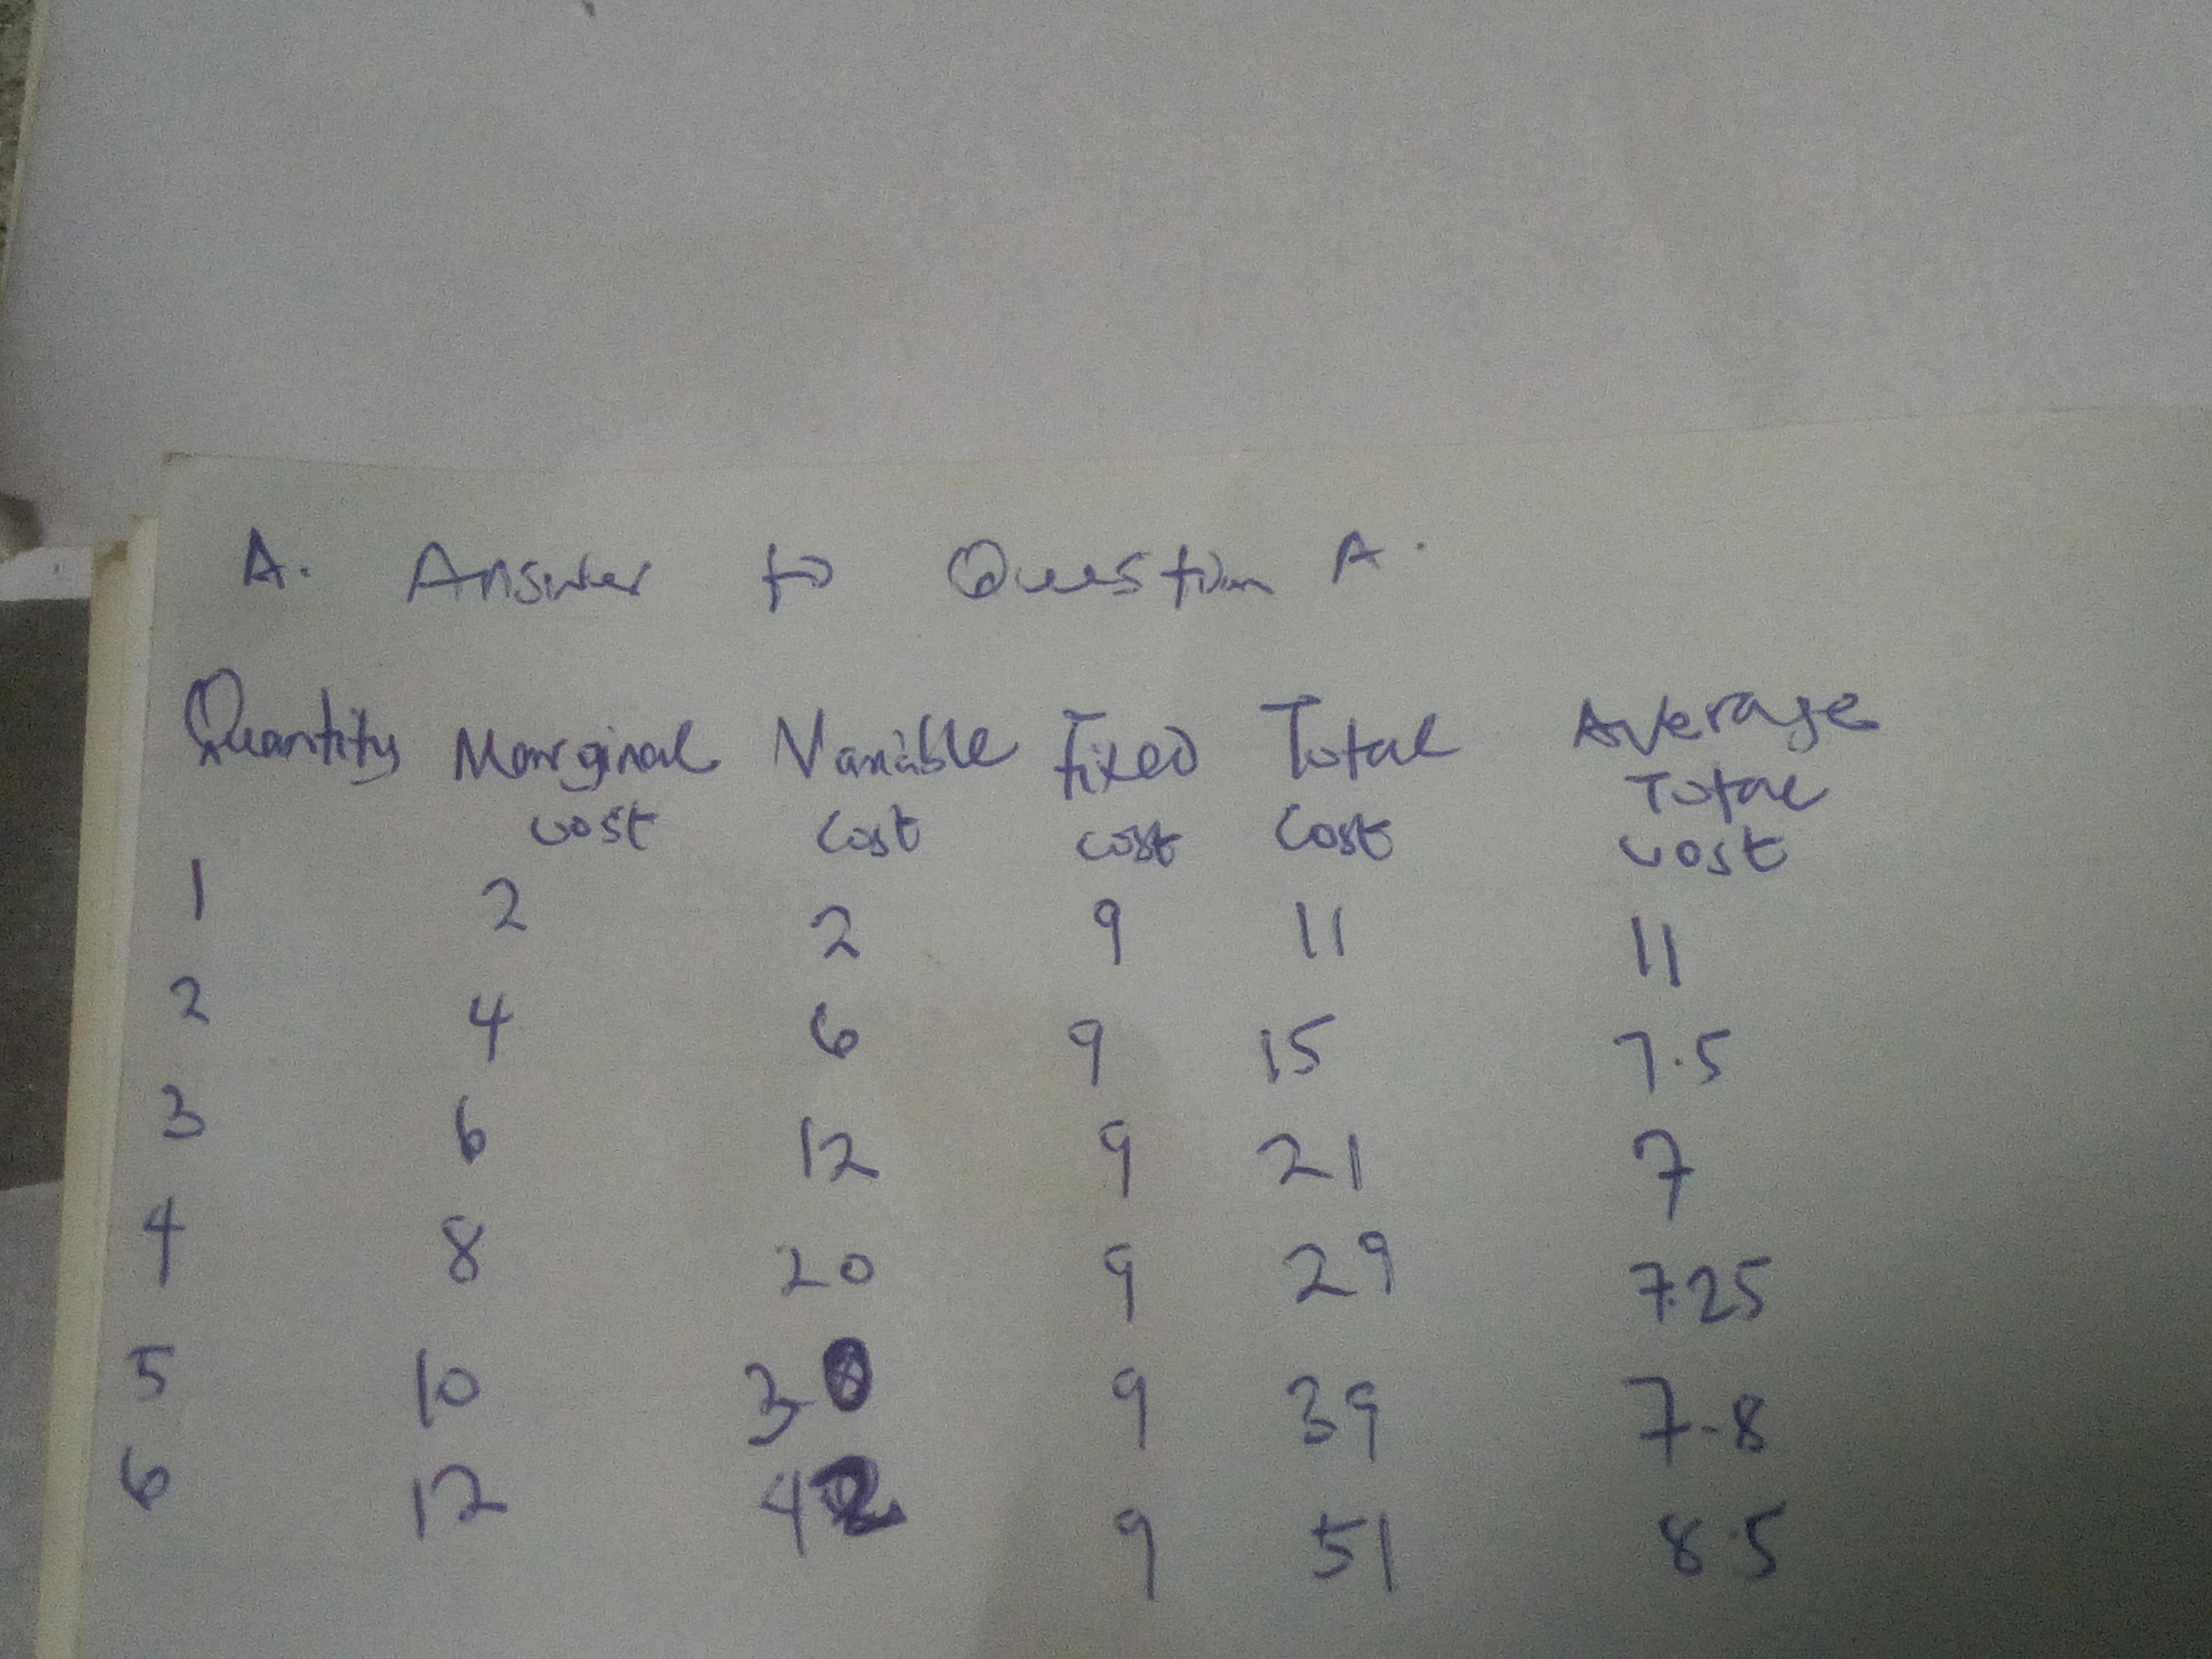 A. Answer to Question A.
Quantity Marginal cost Variable cost Fixed cost Total cost Average Total cost
1 2 2 9 11 11
2 4 6 9 15 7.5
3 6 12 9 21 7
4 8 20 9 29 7.25
5 10 30 9 39 7.8
6 12 42 9 51 8.5